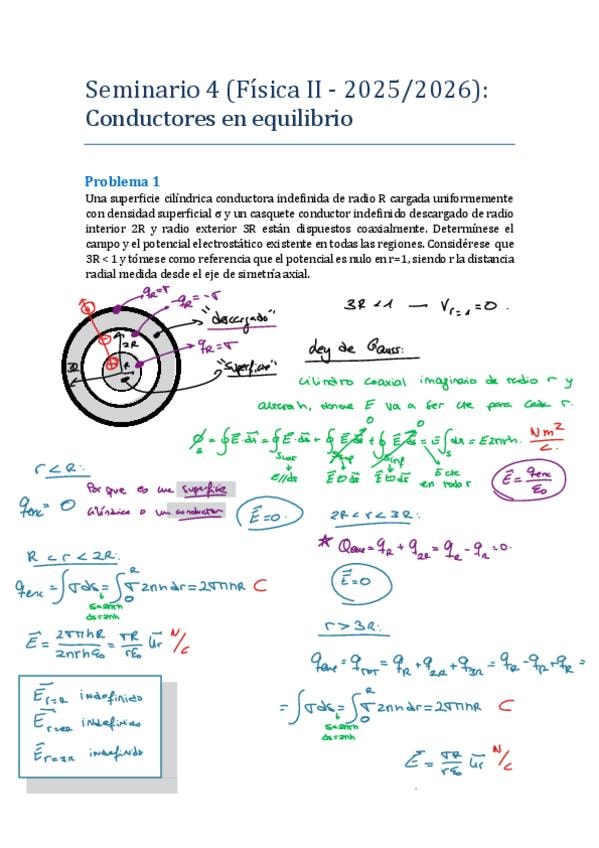 Seminario 4 (Física II - 2025/2026):
Conductores en equilibrio
Problema 1
Una superficie cilíndrica conductora indefinida de radio R cargada uniformemente
con densidad superficial σ y un casquete conductor indefinido descargado de radio
interior 2R y radio exterior 3R están dispuestos coaxialmente. Determínese el
campo y el potencial electrostático existente en todas las regiones. Considérese que
3R < 1 y tómese como referencia que el potencial es nulo en r=1, siendo r la distancia
radial medida desde el eje de simetría axial.
q_R=σ
-q_R=-σ
"descargado"
2R
R
3R
q_R=σ
"Superficie"
3R < 1 → V_{r=1} = 0.
Ley de Gauss:
Cilindro coaxial imaginario de radio r y
altura h, donde E va a ser cte para cada r.
Φ = ∮E·ds = ∮E·ds + ∮E·ds + ∮E·ds = E∫ds = E2πrh. Nm²/C
0 0
E//ds E⊥ds E⊥ds E cte
en todo r
E = q_enc/ε₀
r < R:
q_enc = 0 Porque es una superficie
cilíndrica o un conductor
E = 0.
2R < r < 3R:
* Q_enc = q_R + q_2R = q_R - q_R = 0.
E = 0
R < r < 2R:
q_enc = ∫σds = ∫₀ᴿ σ2πhdr = 2σπhR C
S=2πrh
ds=2πh
E = 2σπhR/2πrhε₀ = σR/rε₀ ur N/C
r > 3R:
q_enc = q_TOT = q_R + q_2R + q_3R = q_R - q_R + q_R =
= ∫σds = ∫₀ᴿ σ2πhdr = 2σπhR C
S=2πrh
ds=2πh
E = σR/rε₀ ur N/C
E_{r=R} indefinido
E_{r=2R} indefinido
E_{r=3R} indefinido